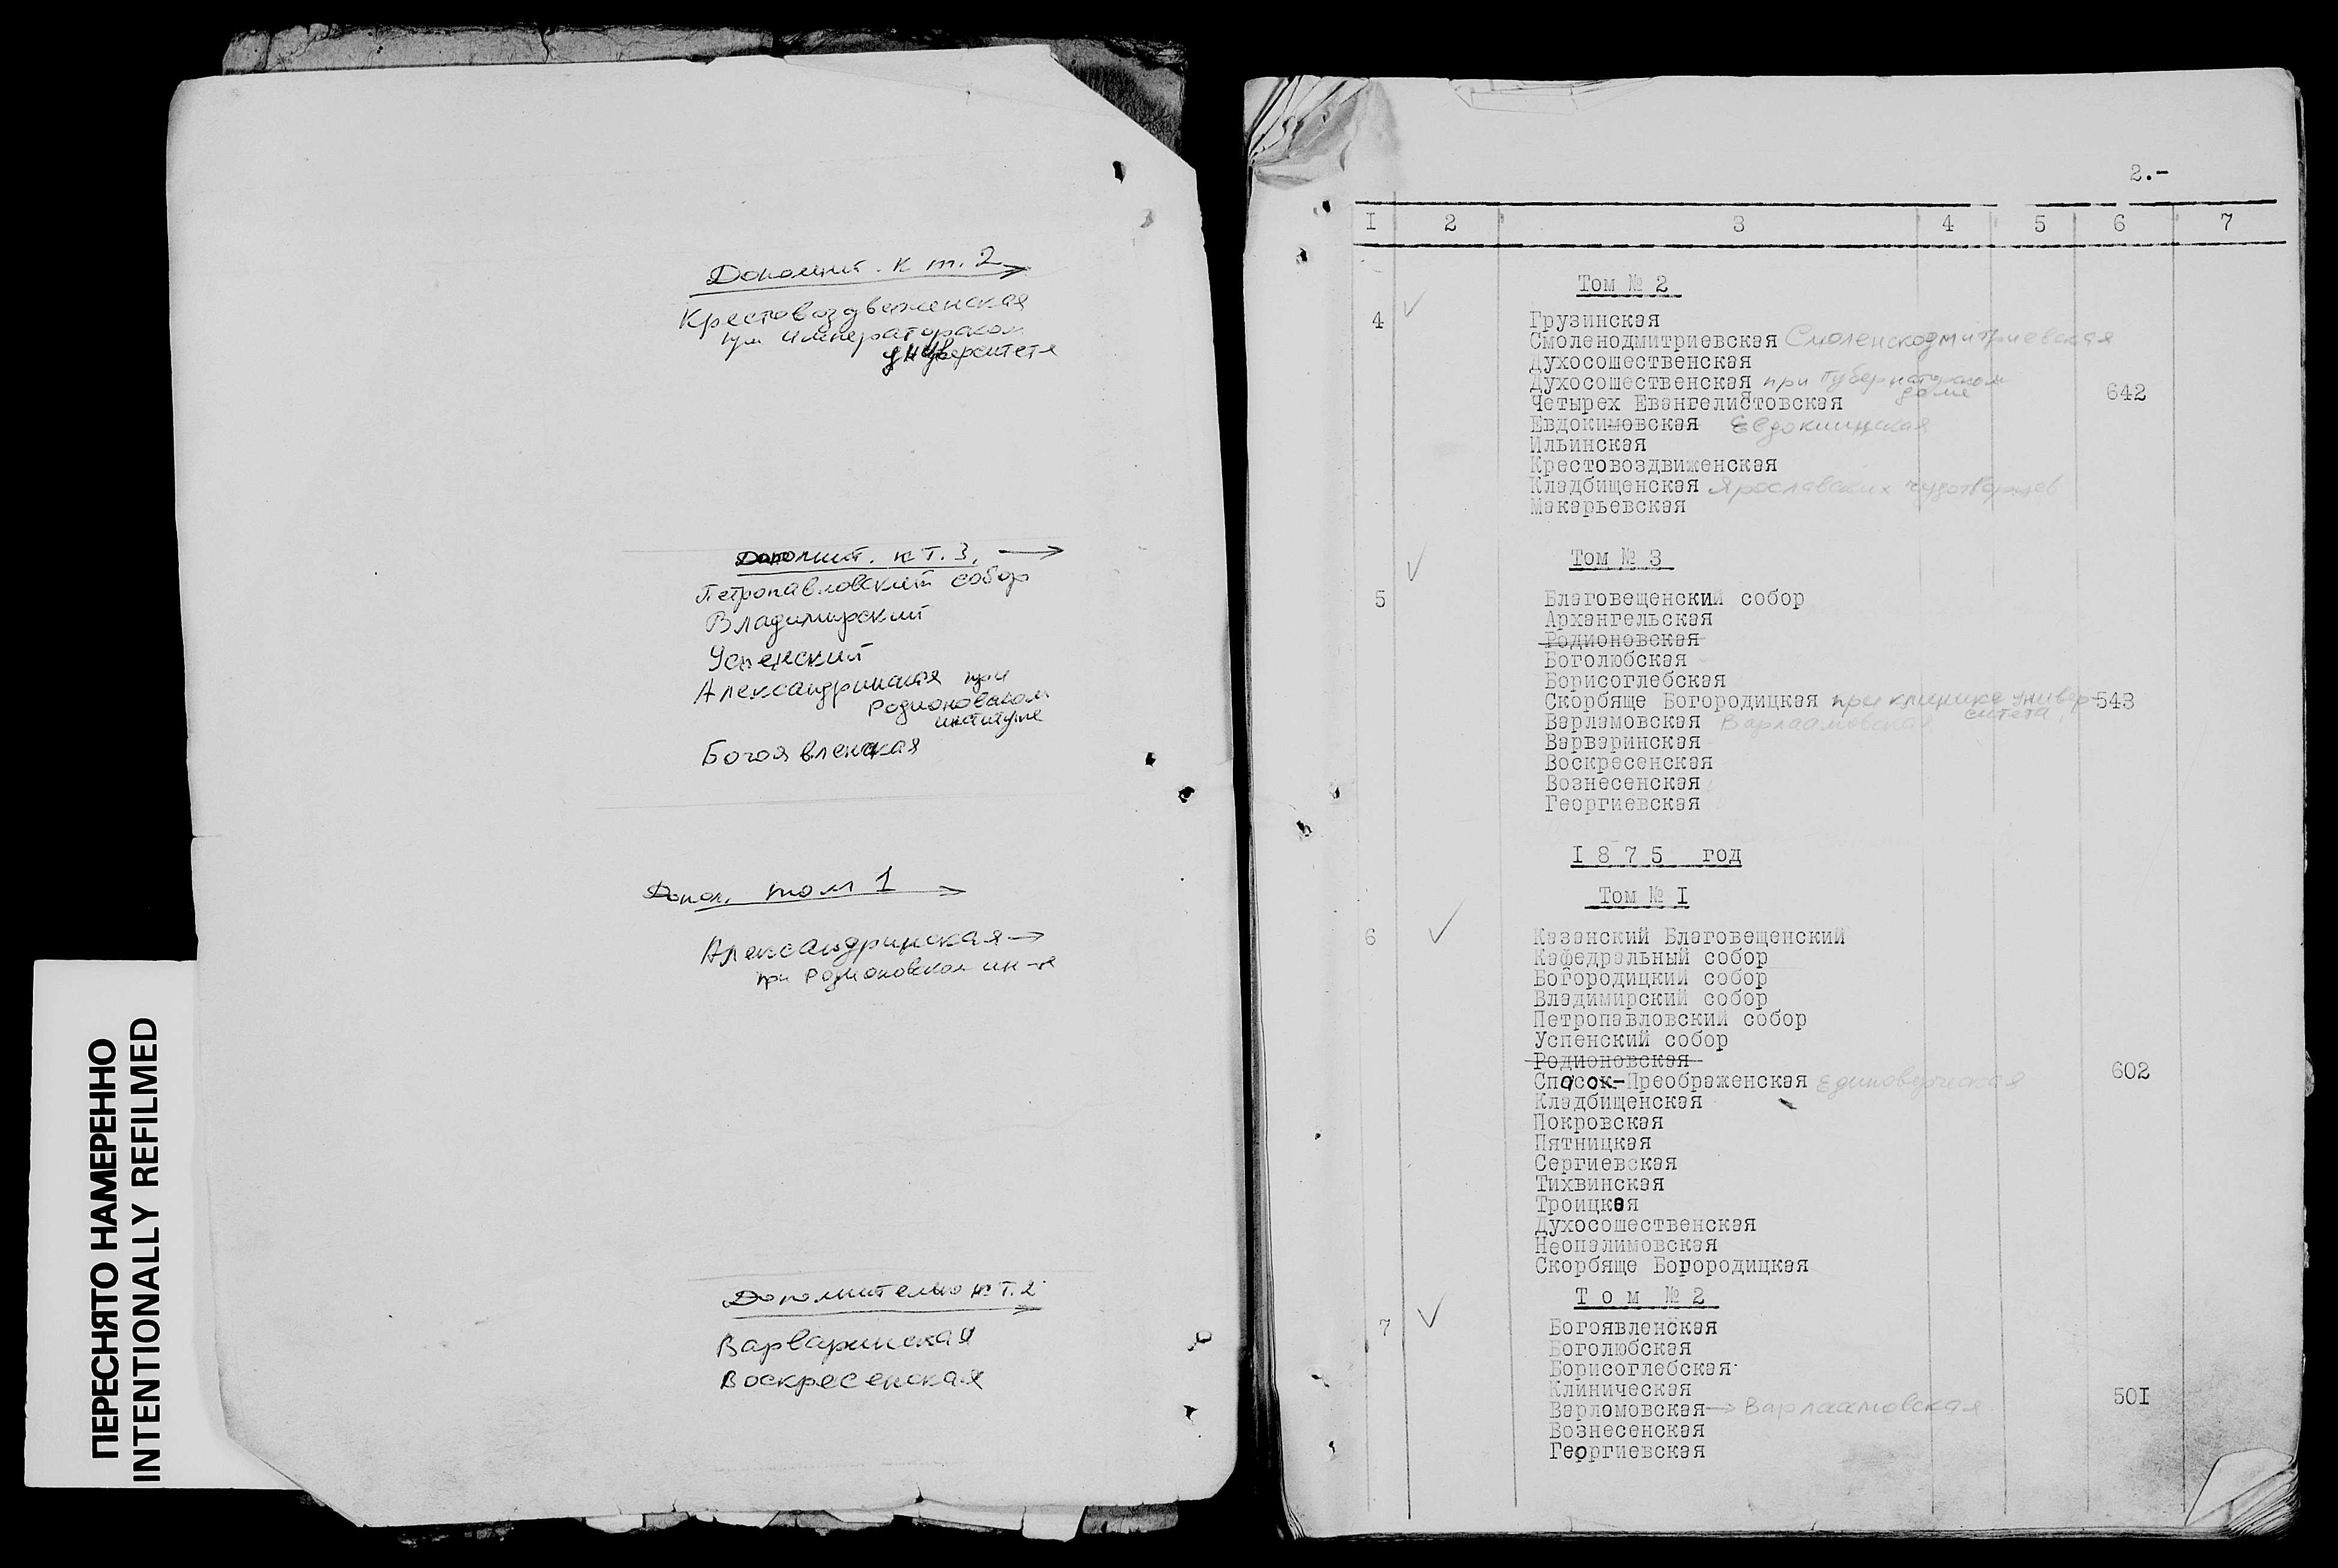 Дополнит. к т. 2
Крестовоздвиженская
при императорском
университете
Дополнит. к т. 3.
Петропавловский собор
Владимирский
Успенский
Александринская при
Родионовском
институте
Богоявленская
Допол. том 1
Александринская
при Родионовском ин-те
Дополнительно к т. 2
Варваринская
Воскресенская
ПЕРЕСНЯТО НАМЕРЕННО
INTENTIONALLY REFILMED
2.-
I 2 3 4 5 6 7
Том № 2
4 Грузинская
Смоленодмитриевская Смоленскодмитриевская
Духосошественская
Духосошественская при Губернаторском
доме
642
Четырех Евангелистовская
Евдокимовская Евдокиинская
Ильинская
Крестовоздвиженская
Кладбищенская Ярославских чудотворцев
Макарьевская
Том № 3
5 Благовещенский собор
Архангельская
Родионовская
Боголюбская
Борисоглебская
Скорбяще Богородицкая при клинике универ- 543
ситета
Варламовская Варлаамовская
Варваринская
Воскресенская
Вознесенская
Георгиевская
I 8 7 5 год
Том № I
6 Казанский Благовещенский
Кафедральный собор
Богородицкий собор
Владимирский собор
Петропавловский собор
Успенский собор
Родионовская
Спасок-Преображенская Единоверческая 602
Кладбищенская
Покровская
Пятницкая
Сергиевская
Тихвинская
Троицкая
Духосошественская
Неопалимовская
Скорбяще Богородицкая
Т о м № 2
7 Богоявленская
Боголюбская
Борисоглебская
Клиническая
Варломовская Варлаамовская 50I
Вознесенская
Георгиевская